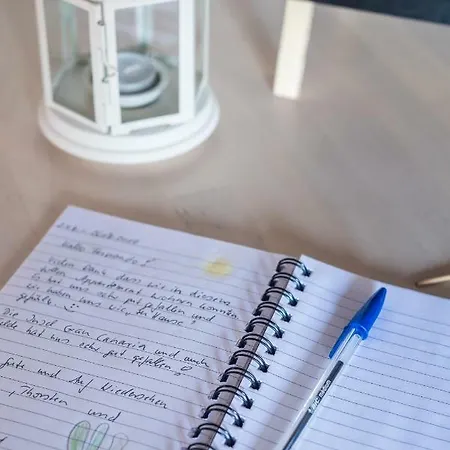 Hallo Fernando!
vielen Dank dass wir in diesem
tollen Apartment wohnen konnten
Es hat uns sehr gut gefallen und
wir haben uns wie zu Hause
gefühlt!
Die Insel Gran Canaria und auch
hat uns sehr gut gefallen!
Gute und Auf Wiedersehen
Thorsten und